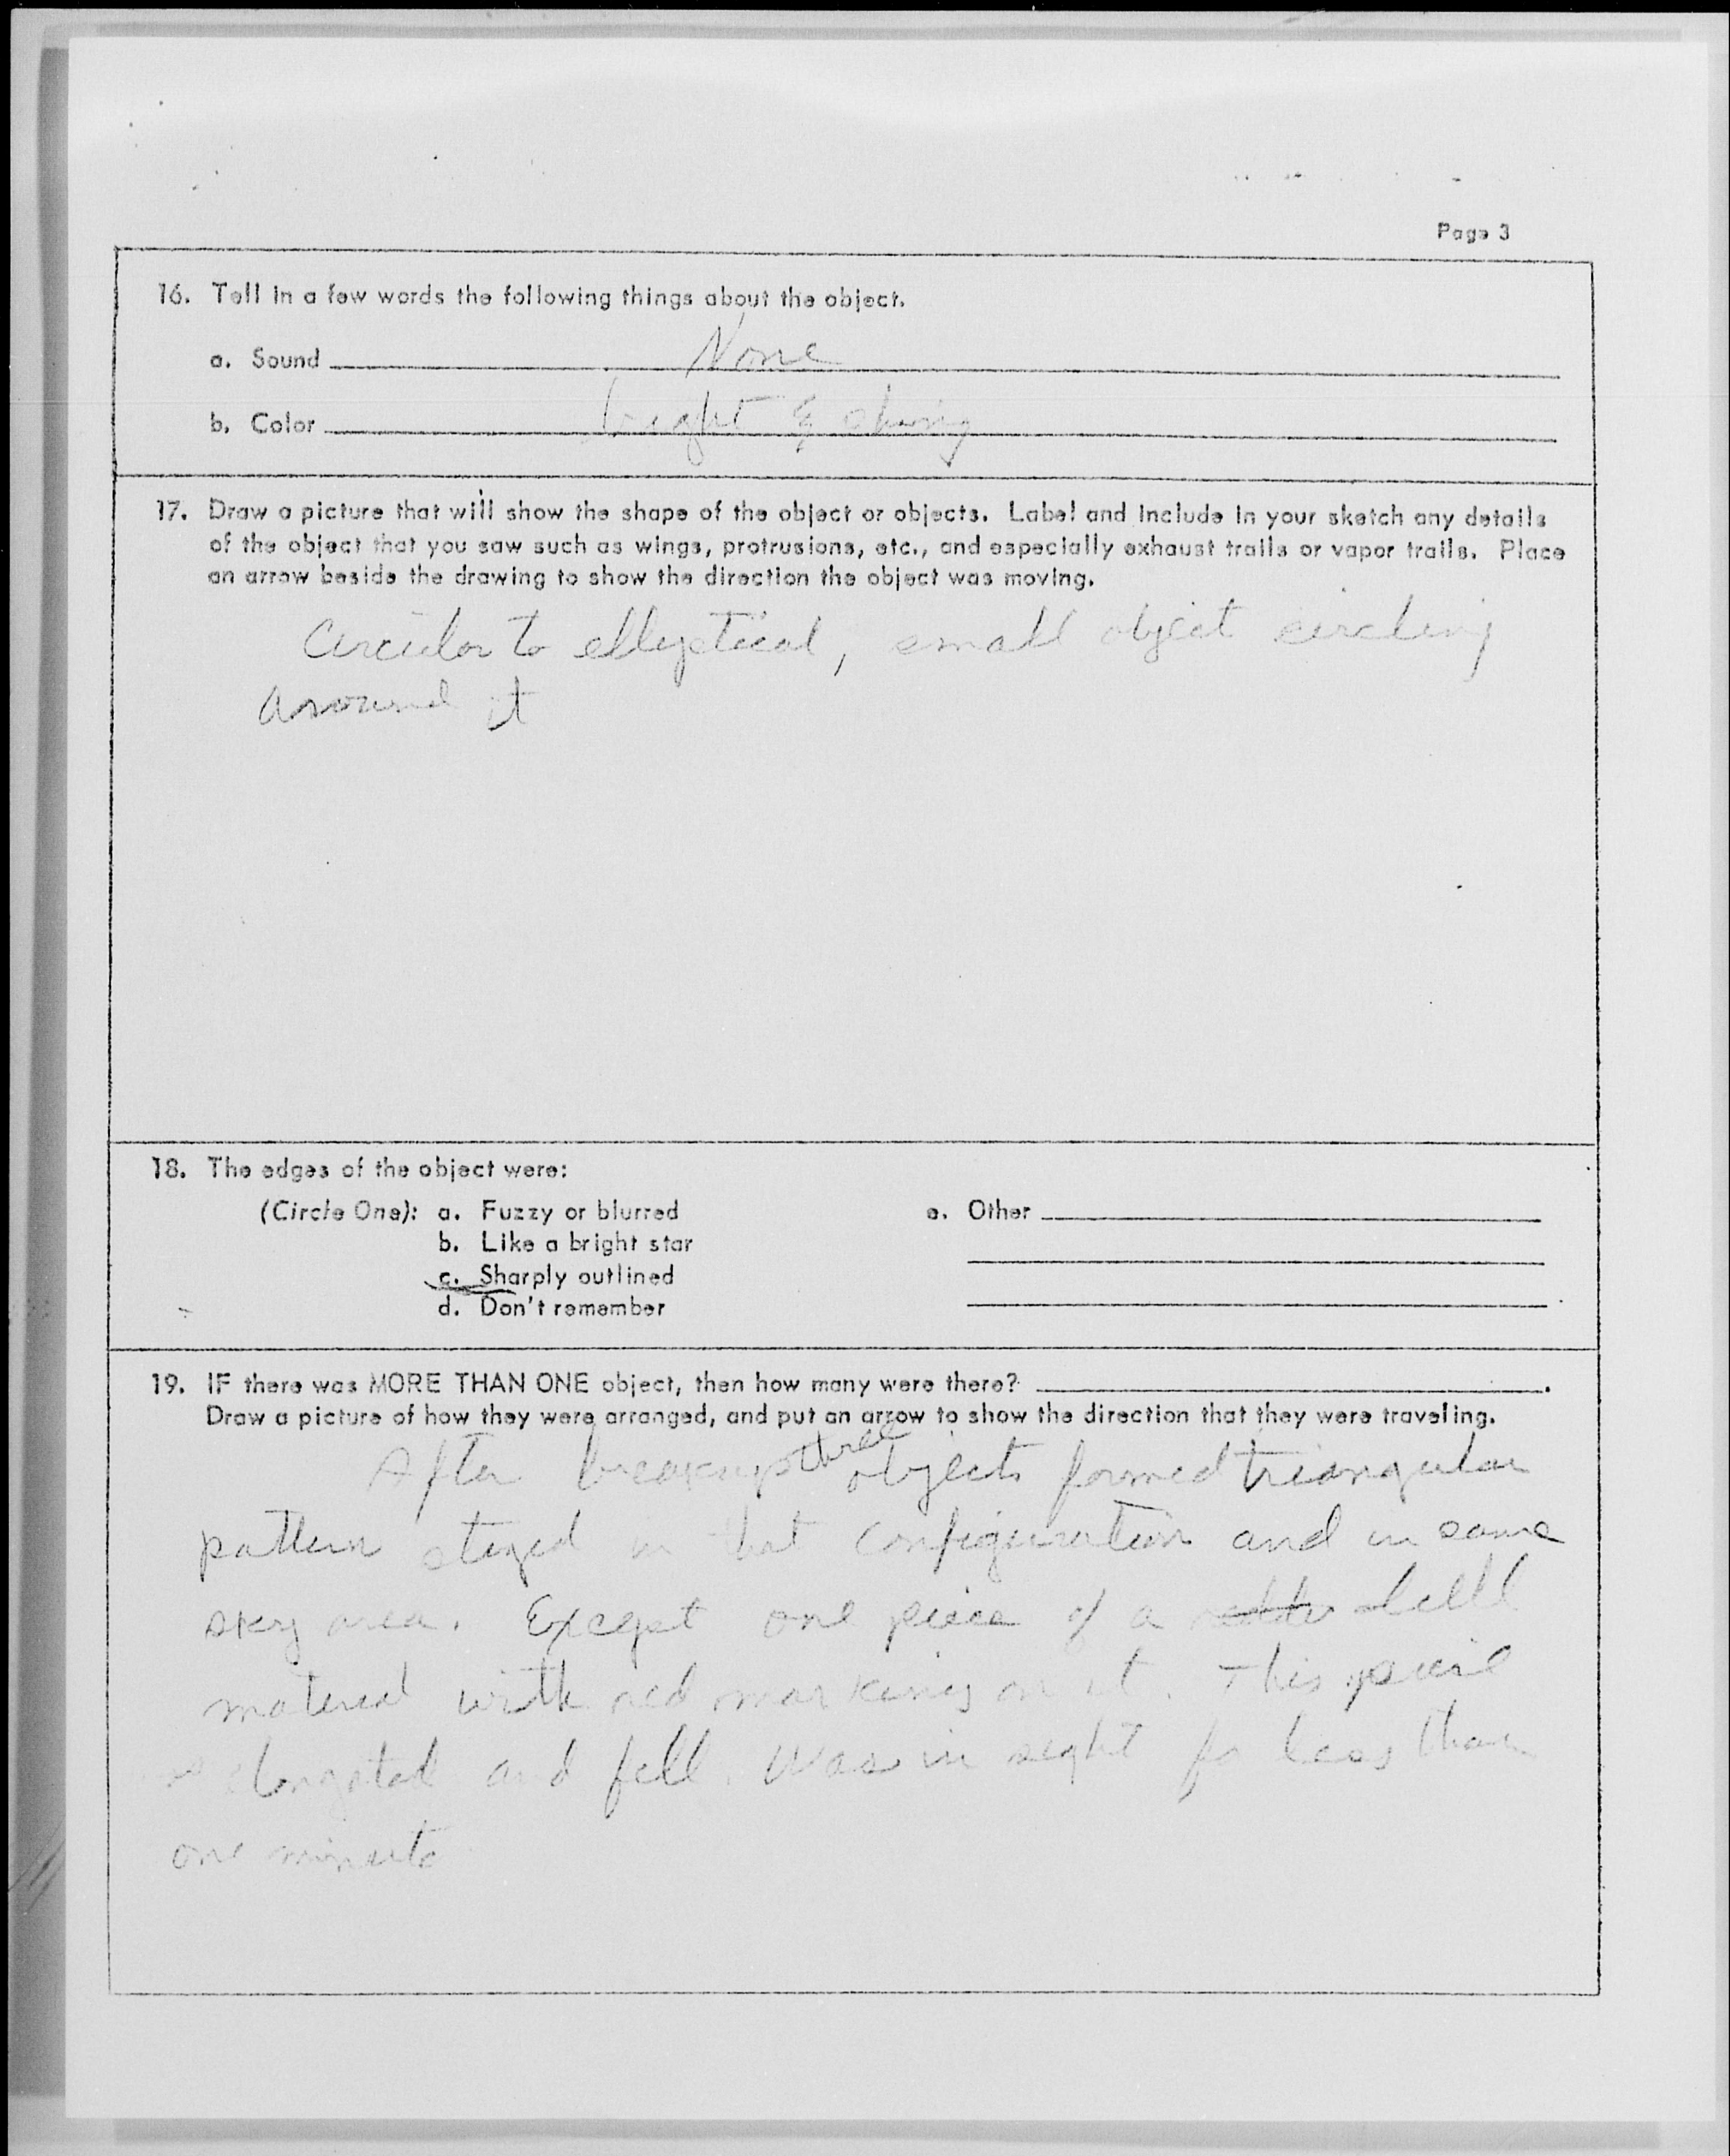 Page 3
16. Tell in a few words the following things about the object.
a. Sound None
b. Color bright & shiny
17. Draw a picture that will show the shape of the object or objects. Label and include in your sketch any details
of the object that you saw such as wings, protrusions, etc., and especially exhaust trails or vapor trails. Place
an arrow beside the drawing to show the direction the object was moving.
Circular to elliptical, small object circling
around it
18. The edges of the object were:
(Circle One): a. Fuzzy or blurred
b. Like a bright star
c. Sharply outlined
d. Don't remember
e. Other
19. IF there was MORE THAN ONE object, then how many were there?
Draw a picture of how they were arranged, and put an arrow to show the direction that they were traveling.
After breakup three objects formed triangular
pattern stayed in that configuration and in same
sky area. Except one piece of a
material with red markings on it. This piece
elongated and fell. Was in sight for less than
one minute